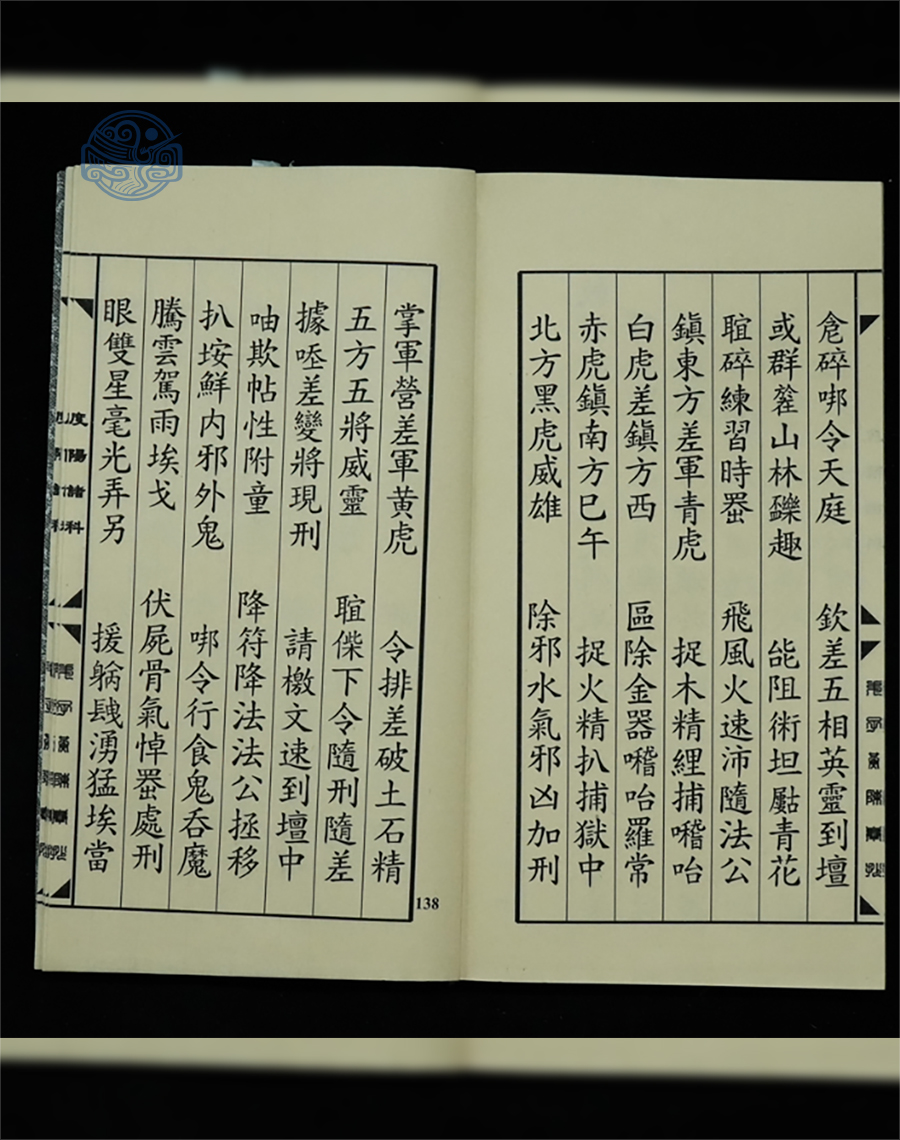 危碎哪令天庭　欽差五相英靈到壇
或群山林趣　能阻術坦青花
聣碎練習時　飛風火速沛隨法公
鎮東方差軍青虎　捉木精捕嘰咍
白虎差鎮方西　區除金器咍羅常
赤虎鎮南方巳午　捉火精扒捕獄中
北方黑虎威雄　除邪水氣邪凶加刑
掌軍營差軍黄虎　令排差破土石精
五方五將威靈　傑下令隨刑隨差
據差變將現刑　請檄文速到壇中
呻欺帖性附童　降符降法法公拯移
扒垵鮮内邪外鬼　哪令行食鬼呑魔
騰雲駕雨埃戈　伏屍骨氣悼處刑
眼雙星毫光弄另　援湧猛埃當
度陽諸科
138